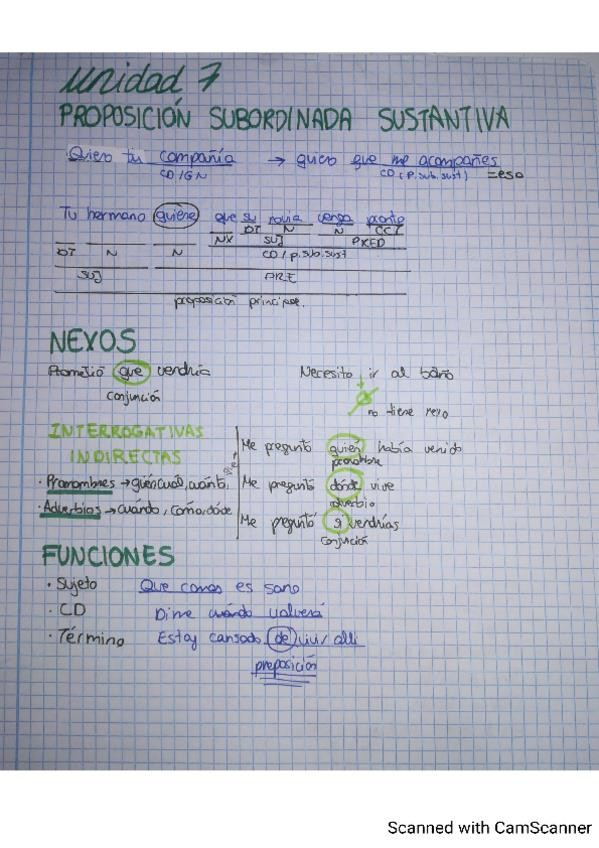 Unidad 7
PROPOSICIÓN SUBORDINADA SUSTANTIVA
Quiero tu compañía → quiero que me acompañes
CD/GN CD (p.sub.sust) =eso
Tu hermano quiere que su novia venga pronto
DT N N CCT
NX SUJ PRED
DT N N CD/p.sub.sust
SUJ PRE
proposición principal.
NEXOS
Prometió que vendría Necesito ir al baño
conjunción no tiene nexo
INTERROGATIVAS INDIRECTAS
Me preguntó quién había venido
pronombre
· Pronombres → quién, cuál, cuánto, Me preguntó dónde vive
adverbio
· Adverbios → cuándo, cómo, dónde
Me preguntó si vendrías
conjunción
FUNCIONES
· Sujeto Que comas es sano
· CD Dime cuándo volverá
· Término Estoy cansado de vivir allí
preposición
Scanned with CamScanner